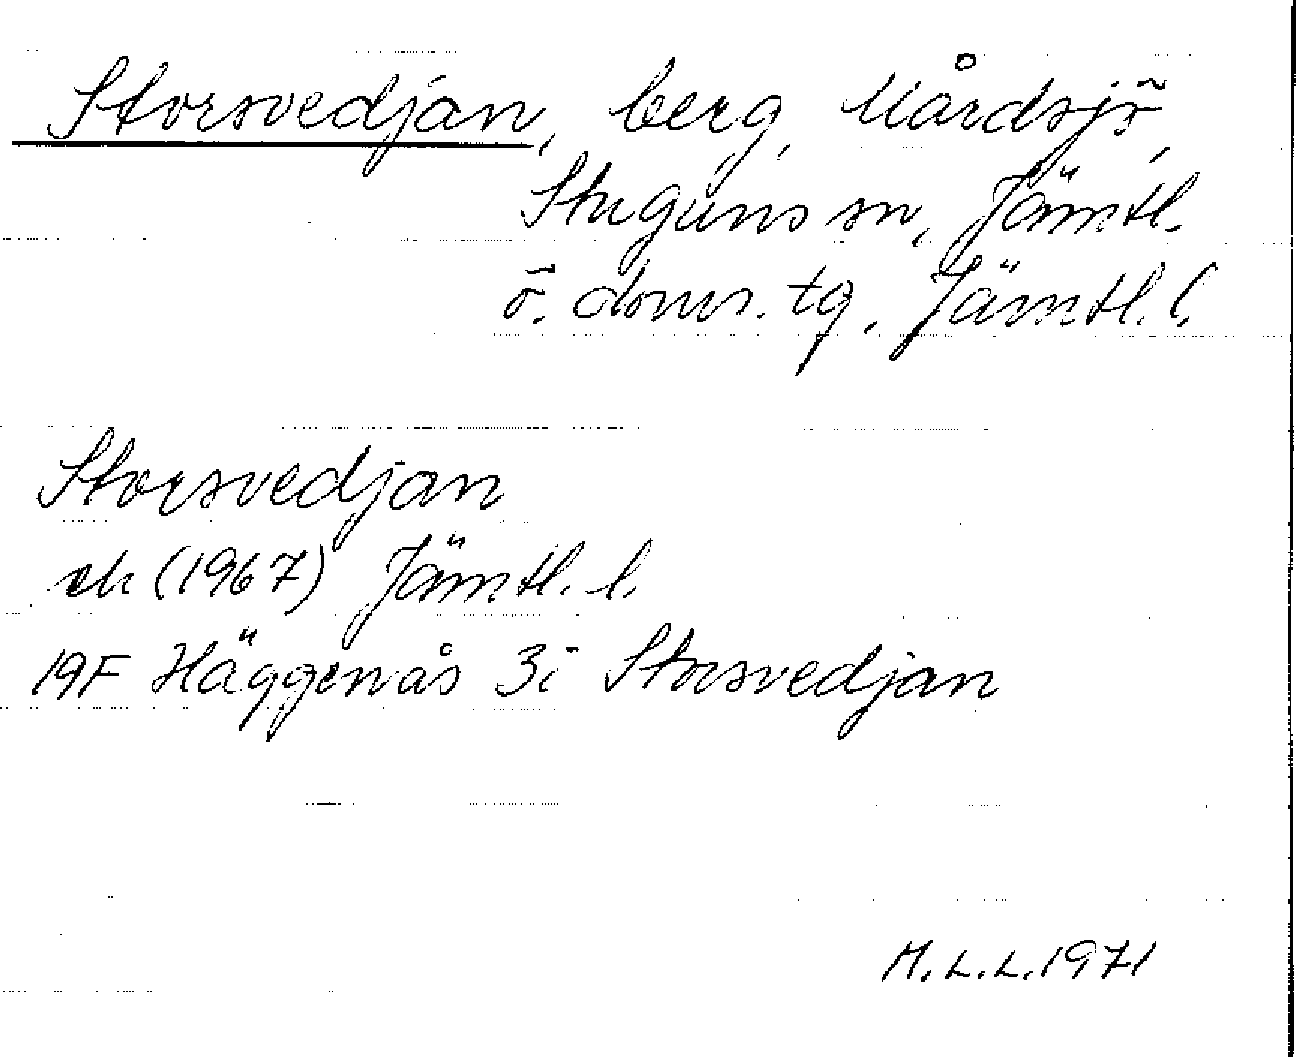 Storsvedjan, berg, Mårdsjö,
Stuguns sn, Jämtl.
ö. doms. tg, Jämtl. l.
Storsvedjan
ek (1967) Jämtl. l.
19F Häggenås 3i Storsvedjan
M.L.L. 1971